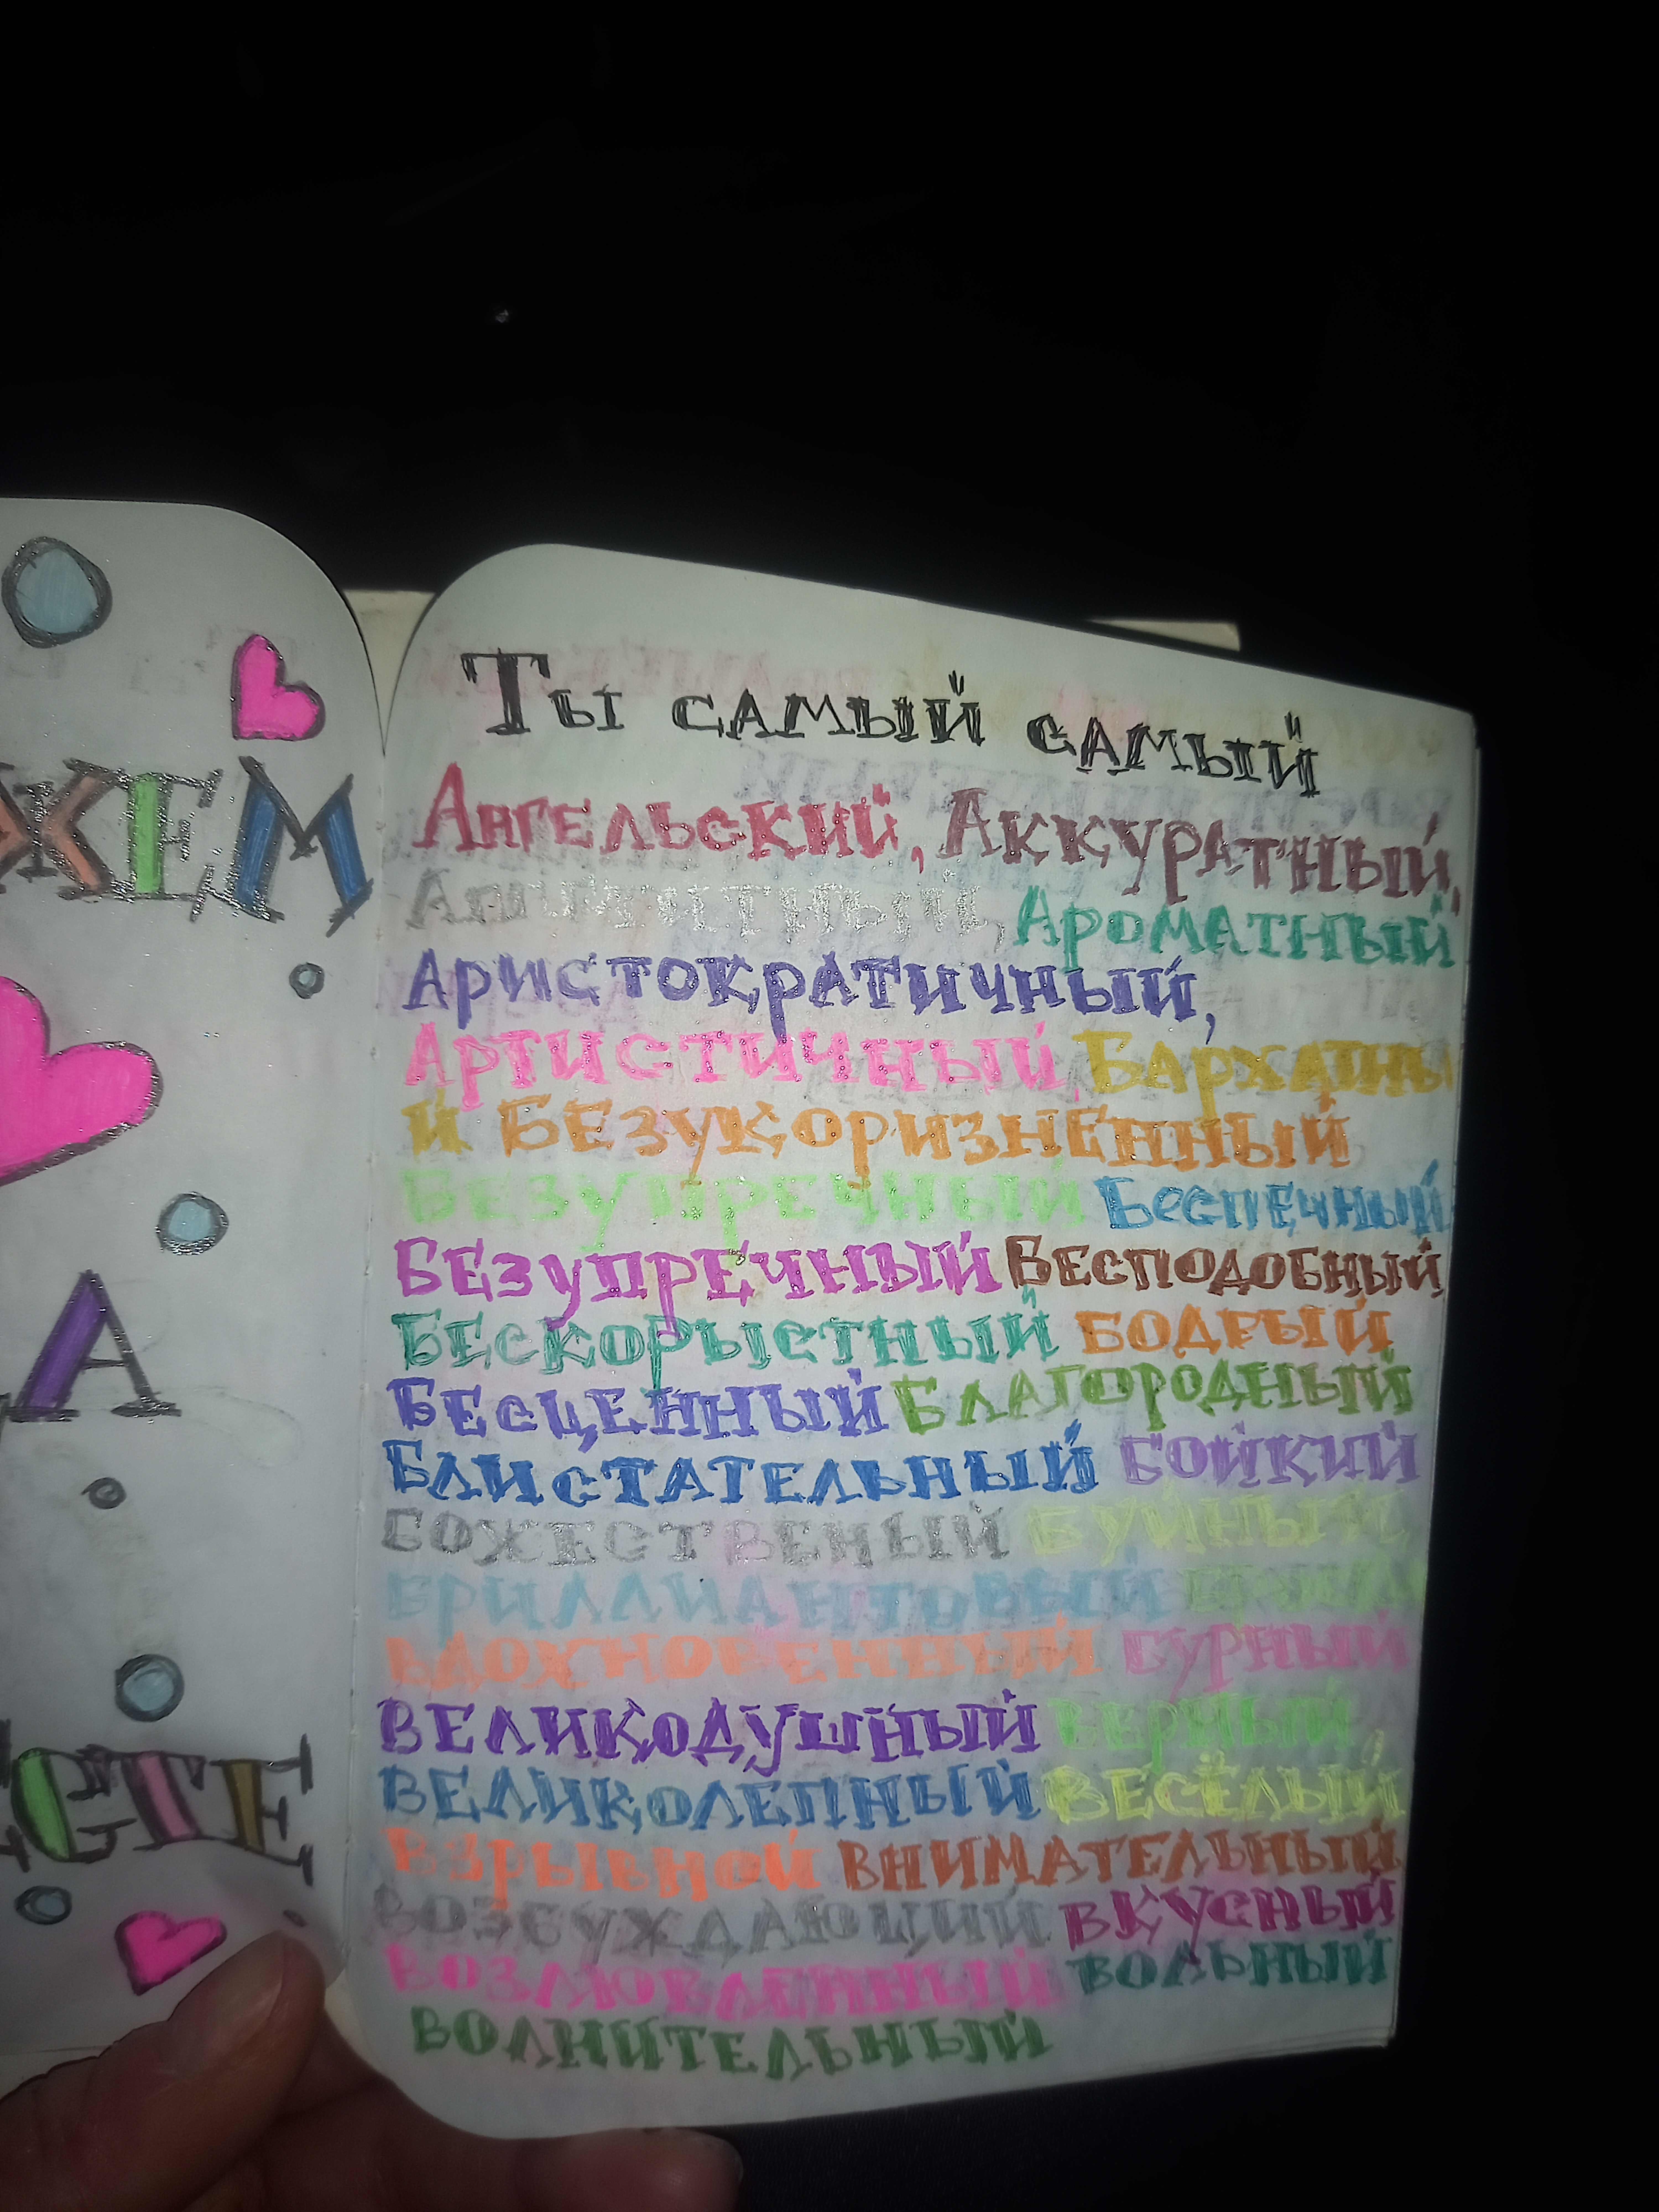 ЖЕМ
А
СТЕ
Ты самый самый
Ангельский, Аккуратный,
Аппетитный, Ароматный
Аристократичный,
Артистичный, Бархатны
й Безукоризненный
Безупречный Беспечный
Безупречный Бесподобный
Бескорыстный Бодрый
Бесценный Благородный
Блистательный Бойкий
Божественый Буйный
Бриллиантовый
Вдохновенный Бурный
Великодушный Верный
Великолепный Весёлый
Взрывной Внимательный
Возбуждающий Вкусный
Возлювленный Вольный
Волнительный